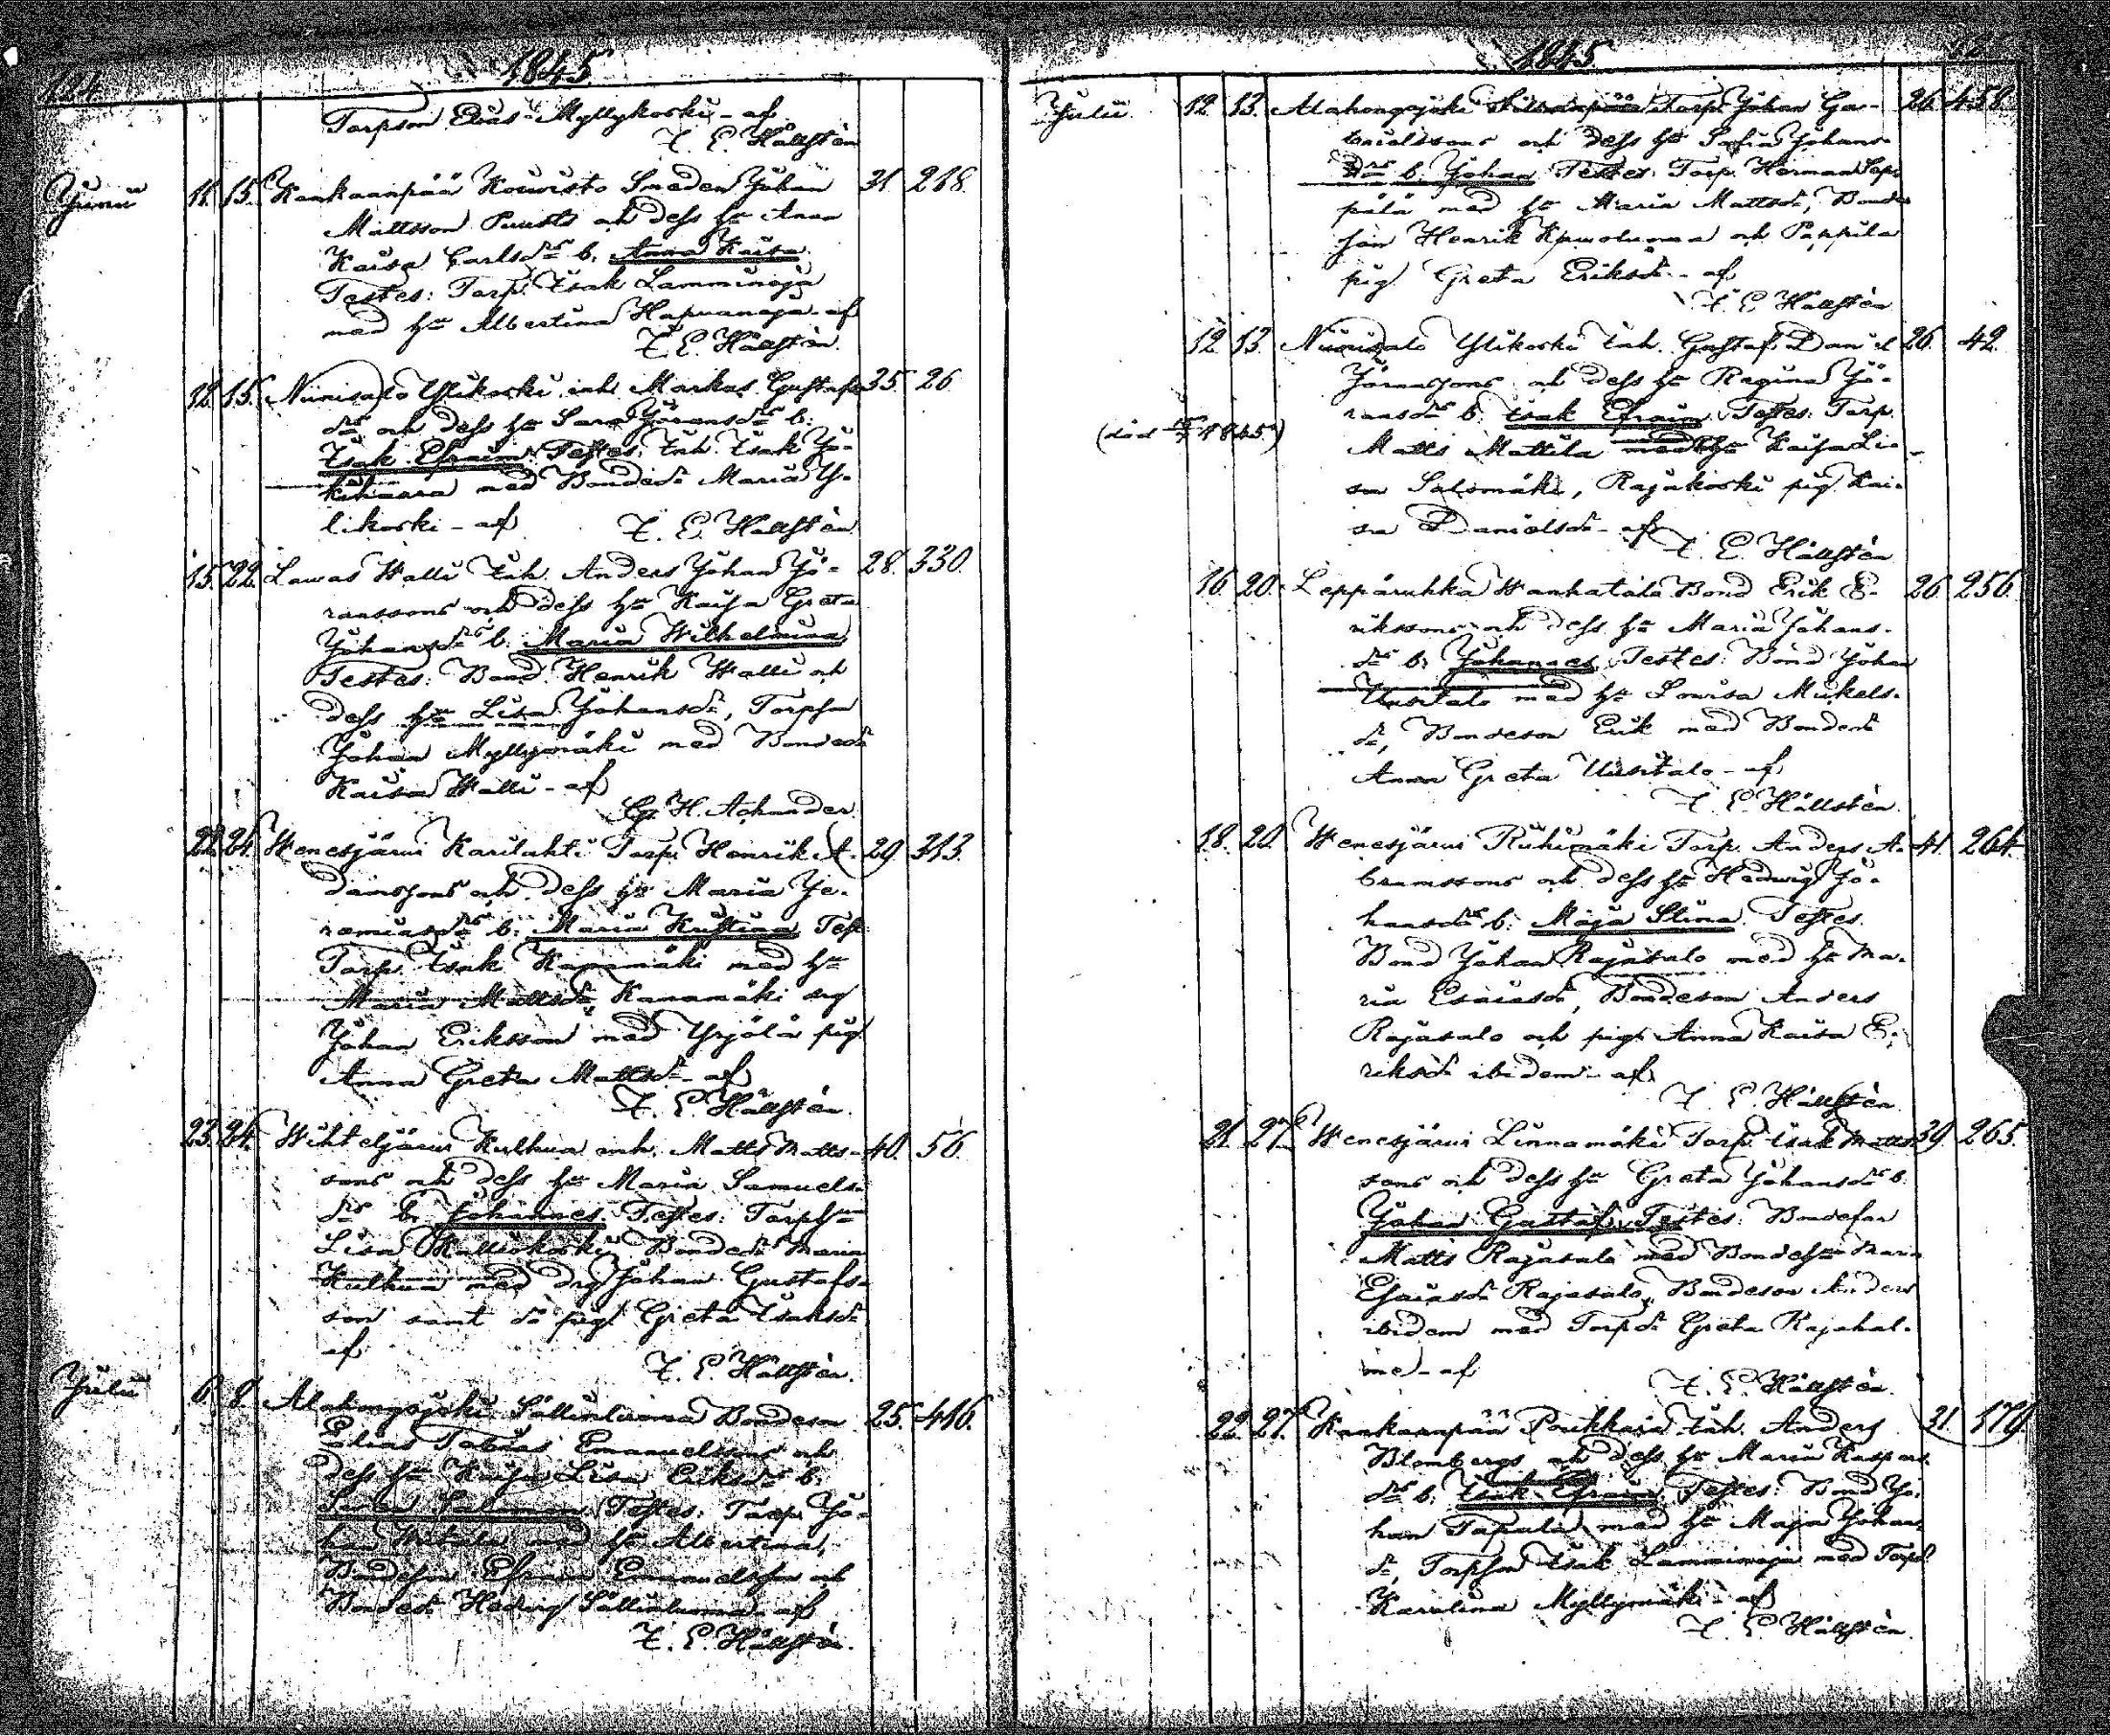 124
1845
Torpson Elias Myllykoski - af
F. E. Hällstén
Junii 11. 15. Kankaanpää Kouvisto Smeden Johan 31. 218.
Mattsson Puusts och dess hu Anna
Kaisa Carlsdrs b. Anna Kaisa
Testes: Torp. Isak Lamminoja
med hu Albertina Hapuanoja - af
F. E. Hällstén.
12. 15. Niinisalo Ylikoski inh. Markus Gustafs 35. 26
drs och dess hu Sara Göransdrs b.
Isak Efraim Testes: Inh. Isak Y-
med Bondedr Maria Y-
likoski - af F. E. Hällstén
15. 22. Lawas Walli Inh. Anders Johan Jö- 28. 330.
ranssons och dess hu Kaisa Greta
Johansdrs b. Maria Wilhelmina
Testes: Bond. Henrik Walli och
dess hu Lisa Johansdr, Torpson
Johan Myllymäki med Bondedr
Kaisa Walli - af
G. H. Achander
22. 24. Wenesjärvi Karilahti Torp. Henrik A- 29. 313.
damsons och dess hu Maria Je-
remiasdrs b. Maria Kristina Test:
Torp. Isak Kanamäki med hu
Maria Mattsdr, Kanamäki drg
Johan Eriksson med Yrjälä pig.
Anna Greta Mattsdr - af
F. E. Hällstén.
23. 24. Wihteljärvi Kulkua inh. Matts Matts- 40. 56.
sons och dess hu Maria Samuels-
drs b. Johannes. Testes: Torphu
Lisa Kalliokoski, Bondedr Maria
Kulkua med drg Johan Gustafs-
son samt do pig. Greta Isaksdr
af
F. E. Hällstén.
Julii 6. 8. Alahongojoki Sällinluoma Bondeson 25. 416.
Elias Tobias Emanuelssons och
dess hu Kaisa Lisa Eriksdrs b.
Salomon Testes: Torp. Jo-
han med hu Albertina,
Bondeson Efraim Emanuelsson och
Bondedr Hedvig Sällinluoma - af
F. E. Hällstén.
1845
Julii 12. 13. Alahongojoki Torp. Johan Ga- 26. 458.
brielssons och dess hu Sofia Johans-
drs b. Johan Testes: Torp. Herman Sep-
pälä med hu Maria Mattsdr, Bonde
son Henrik och Pappila
pig. Greta Eriksdr - af
F. E. Hällstén
12. 13. Niinisalo Ylikoski Inh. Gustaf Daniel 26. 42.
Göranssons och dess hu Regina Gö-
ransdrs b. Isak Efraim Testes: Torp.
(död 1845)
Matts Mattila med hu Kaisa Li-
sa Salomäki, Rajakoski pig. Kai-
sa Danielsdr - af
F. E. Hällstén
16. 20. Leppäruhka Wanhatalo Bond. Erik E- 26. 256.
rikssons och dess hu Maria Johans-
drs b. Johannes, Testes: Bond Johan
Uusitalo med hu Lovisa Mickels-
dr, Bondeson Erik med Bondedr
Anna Greta Uusitalo - af
F. E. Hällstén.
18. 20. Wenesjärvi Riihimäki Torp. Anders A- 41. 264.
bramssons och dess hu Hedwig Jo-
hansdrs b. Maja Stina. Testes.
Bond Johan Rajasalo med hu Ma-
ria Esaiasdr, Bondeson Anders
Rajasalo och pig. Anna Kaisa E-
riksdr ibidem - af
F. E. Hällstén
21. 27. Wenesjärvi Linnamäki Torp. Isak Matts 39. 265.
sons och dess hu Greta Johansdrs b.
Johan Gustaf. Testes: Bondeson
Matts Rajasalo med Bondehu Maria
Esaiasdr Rajasalo, Bondeson Anders
ibidem med Torpdr Greta Rajahal-
me - af
F. E. Hällstén.
22. 27. Kankaanpää Poukkara Inh. Anders 31. 179.
Blombergs och dess hu Maria Kaspers-
drs b. Isak Efraim Testes: Bond Jo-
han Tapala med hu Maja Johans-
dr, Torpson Isak Lamminoja med Torpdr
Karolina Myllymäki - af
F. E. Hällstén